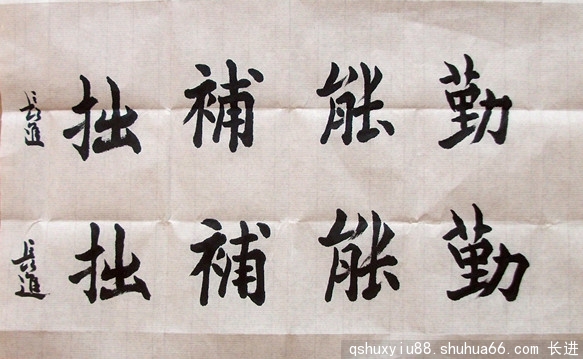 勤能補拙
長進
勤能補拙
長進
qshuxyiu88.shuhua66.com 长进